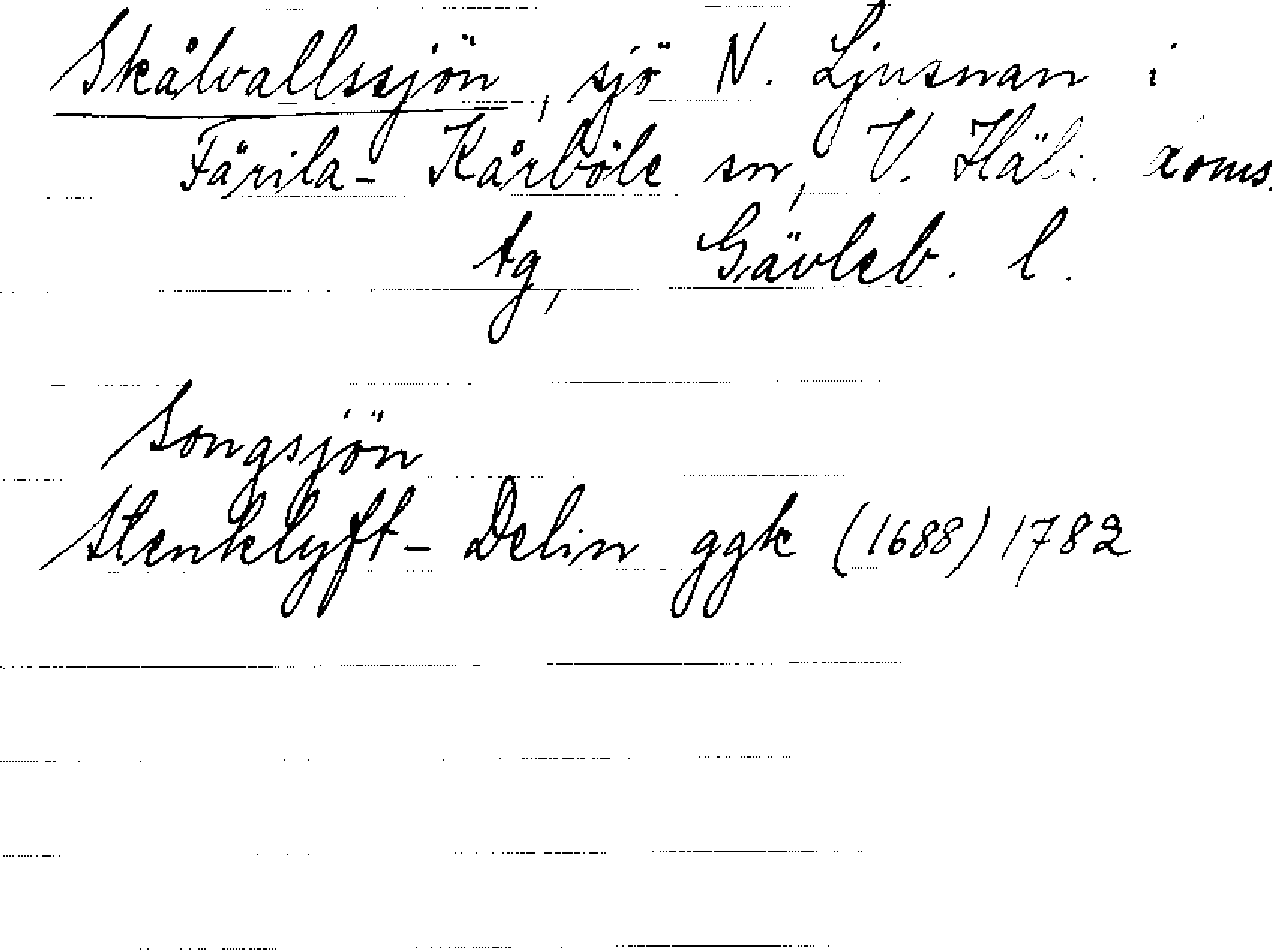 Skålvallssjön, sjö N. Ljusnan i
Färila-Kårböle sn, V. Häls. doms.
tg, Gävleb. l.
Songsjön
Stenklyft-Delin ggk (1688) 1782